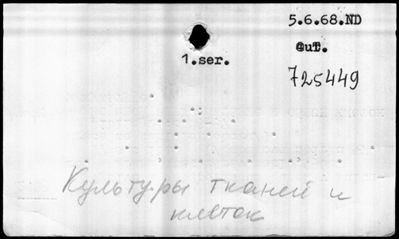 5.6.68.ND
Gut.
1.ser.
725449
Культуры тканей и
клеток